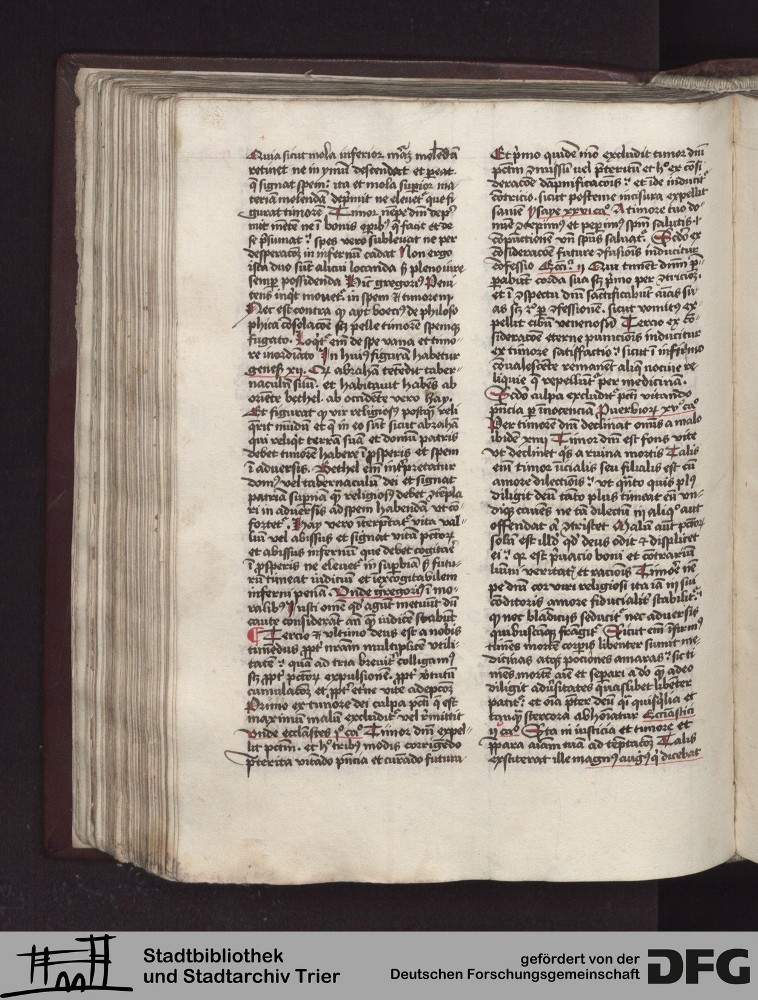 Quia sicut mola inferior
retinet ne in ymum descendat et pereat
q signat spem: ita et mola supior ma
teriam molendam depimit ne elevet que fi
gurat timorē Timor nēpe dm dep
mit mētē ne ī bonis opib q facit et de
se psumat: spes vero sublevat ne per
desperacōz in infernū cadat Non ergo
ista duo sūt alicui locanda
semp possidenda Hic gregori Peni
tens inqt movet in spem & timorem
Nec est contra q ayt boeci de philoso
phica cōsolacōe sz pelle timorē spemq
fugato. Loqt em de spe vana et timo
re mordinato In hui figurā habetur
genes xij. abrahā tetedit taber
naculū suū. et habitavit habēs ab
oriēte bethel. ab occidēte vero hay.
Et figurat q vir religios postq reli
qrit mūdū et q in eo sūt sicut abrahā
qui reliqt terrā suā et domū patris
debet timorē habere ī psperis et spem
ī adversis. Bethel em intpretatur
dom vel tabernaculū dei et signat
patria supna q religios debet ztēpla
ri in adversis ad spem habendā ut cō
fortet. Hay vero īterptat vita val
lium vel abissus et signat vitā pctorz
et abissus infernū que debet cogitare
ī psperis ne elevet in supbiā s futu
rū timeat iudiciū et īexcogitabilem
inferni penā. Unde gregori ī mo
ralib Iusti omē qd agūt metuūt dū
caute considerāt an q iudicē stabūt
Tercio & ultimo deus est a nobis
timēdus ppt nrām multiplicē utili
tatē: quā ad tria brevit colligam
sz ppt pctorz expulsionē. ppt vtutū
cumulacōz et ppt etne vite adepcōz
Primo ex timore dei culpa pcti q est
maximū malū excludit vel
unde ecclastes pº caº Timor dm expel
lit pctm. et hº tribus modis corrigēdo
pterita vitādo pncia et curādo futura
Et pmo quidē mō excludit timor dm
pctm zmissū vel pteritū et hº ex cōsi
deracōe dāpnificacōis: et ide inducit
cōtricio. sicut posteme incisura expellit
saniē Isaye xxvi caº A timore tuo do
mine zcepim et pepim spm salutis
cōpūctione Scdo ex
cōsideracōe future zfusiōis inducitur
cōfessio Ecci. ij Qui timēt dnm p
pabūt corda sua sz pmo per ztricioz.
et ī zspectu dnm sāctificabūt aias su
as sz zfessionē. sicut vomitus ex
pellit cibū venenosū Tercio ex cō
sideracōe eterne punicionis inducitur
ex timore satisfactio: sicut ī infirmo
convalescēte remanēt aliq nocive re
liquie q repellūt per medicinā.
Scdo culpa excludit pctm vitando
pncia p īnocencia Puerbiorz xv caº
Per timorē dm declinat omis a malo
ibidē xiiij Timor dm est fons vite
ut declinet qs a ruina mortis Talis
em timor ūcialis seu filialis est cū
amore dilectiōis: ut qnto quis pl
diligit deū tāto plus timeat eū un
diqz cavēs ne tā dilectū in aliq aut
offendat a ztristet Malū aut pctorz
solū est illd qd deus odit & displicet
ei: q est pvacio boni et contrariū
luim veritatz et racionis Timōe nē
pe dm cor viri religiosi ita iā in sui
cōditoris amore fiducialit stabilit
q nec bladiciis seducit nec adversis
quibuscūqz frāgit. Sicut em īfirm
timēs mortē corpis libenter sumit me
dicinas atqz pociones amaras: sic ti
mēs mortē aīe et separi a do q adeo
diligit adūsitates quaslibet libēter
patit: et oīa pter deū qi quisqlia et
tanq stercora abhoīatur Ecclasiastici
ij caº Sta in iusticia et timore et
ppara aīam tuā ad tēptacōz Talis
exstiterat ille magn aug q dicebat
Stadtbibliothek
und Stadtarchiv Trier
gefördert von der
Deutschen Forschungsgemeinschaft
DFG